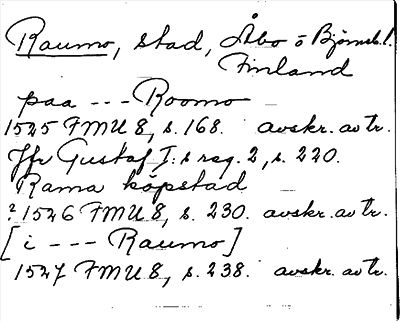 Raumo, stad, Åbo o Björneb. l.
Finland
paa --- Roomo
1525 FMU 8, s. 168. avskr. av tr.
Jfr Gustaf I:s reg. 2, s. 220.
Rama köpstad
? 1526 FMU 8, s. 230. avskr. av tr.
[i --- Raumo]
1527 FMU 8, s. 238. avskr. av tr.